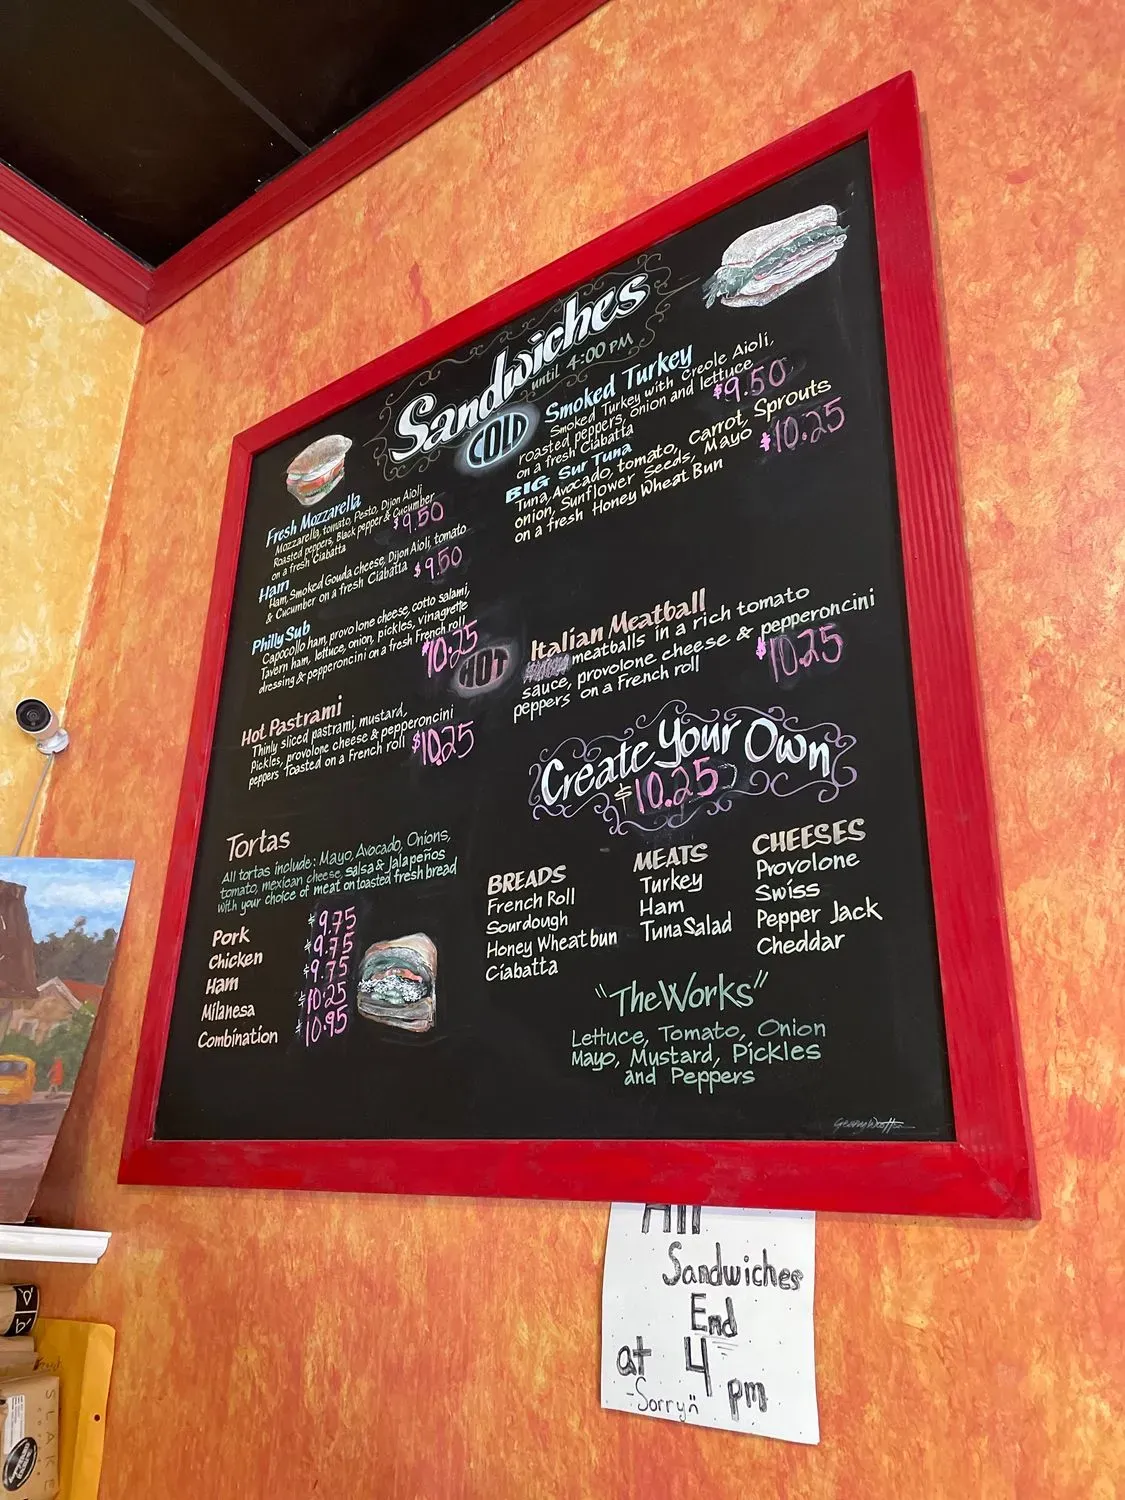 Sandwiches
until 4:00 PM
COLD
Fresh Mozzarella
Mozzarella, tomato, Pesto, Dijon Aioli
Roasted peppers, Black pepper & Cucumber
on a fresh Ciabatta
$9.50
Ham
Ham, Smoked Gouda cheese, Dijon Aioli, tomato
& Cucumber on a fresh Ciabatta $9.50
Philly Sub
Capocollo ham, provolone cheese, cotto salami,
Tavern ham, lettuce, onion, pickles, vinagrette
dressing & pepperoncini on a fresh French roll
$10.25
Smoked Turkey
Smoked Turkey with Creole Aioli,
roasted peppers, onion and lettuce
on a fresh Ciabatta
$9.50
BIG Sur Tuna
Tuna, Avocado, tomato, Carrot, Sprouts
onion, Sunflower Seeds, Mayo
on a fresh Honey Wheat Bun
$10.25
HOT
Hot Pastrami
Thinly sliced pastrami, mustard,
Pickles, provolone cheese & pepperoncini
peppers toasted on a French roll $10.25
Italian Meatball
meatballs in a rich tomato
sauce, provolone cheese & pepperoncini
peppers on a French roll
$10.25
Tortas
All tortas include: Mayo, Avocado, Onions,
tomato, mexican cheese, salsa & Jalapeños
with your choice of meat on toasted fresh bread
Pork $9.75
Chicken $9.75
Ham $9.75
Milanesa $10.25
Combination $10.95
Create Your Own
$10.25
BREADS
French Roll
Sourdough
Honey Wheat bun
Ciabatta
MEATS
Turkey
Ham
Tuna Salad
CHEESES
Provolone
Swiss
Pepper Jack
Cheddar
"The Works"
Lettuce, Tomato, Onion
Mayo, Mustard, Pickles
and Peppers
All
Sandwiches
End
at 4 pm
-Sorry